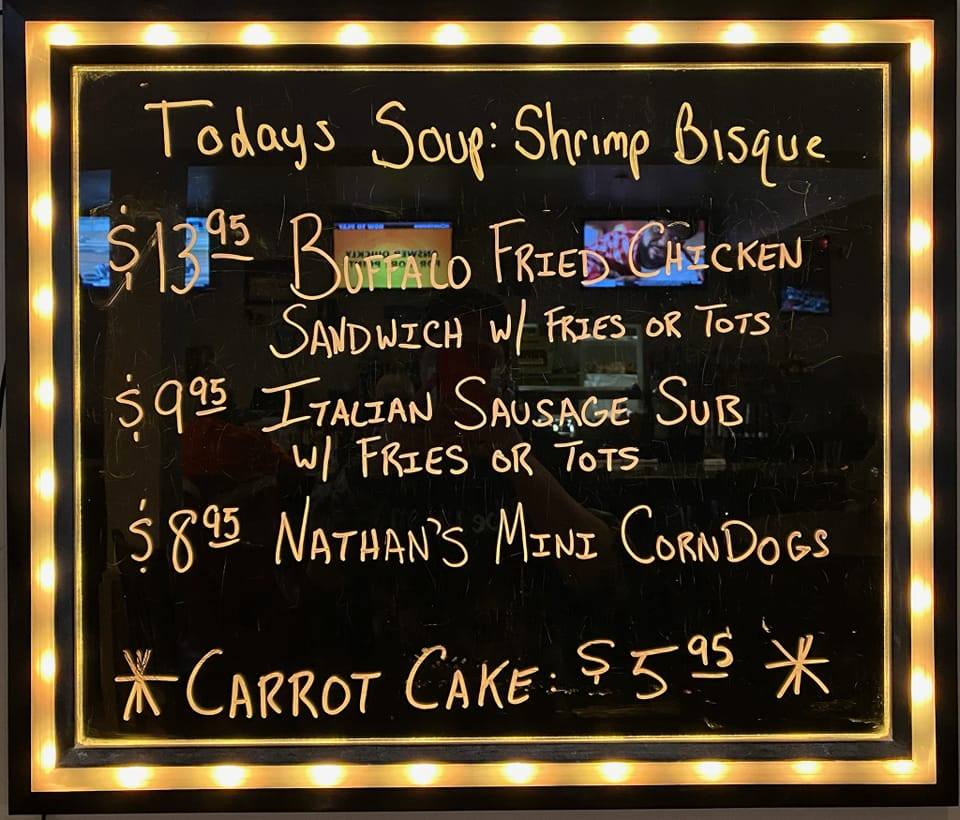 Todays Soup: Shrimp Bisque
$13.95 Buffalo Fried Chicken
Sandwich w/ Fries or Tots
$9.95 Italian Sausage Sub
w/ Fries or Tots
$8.95 Nathan's Mini CornDogs
*Carrot Cake: $5.95 *
HOW TO PLAY
ANSWER QUICKLY